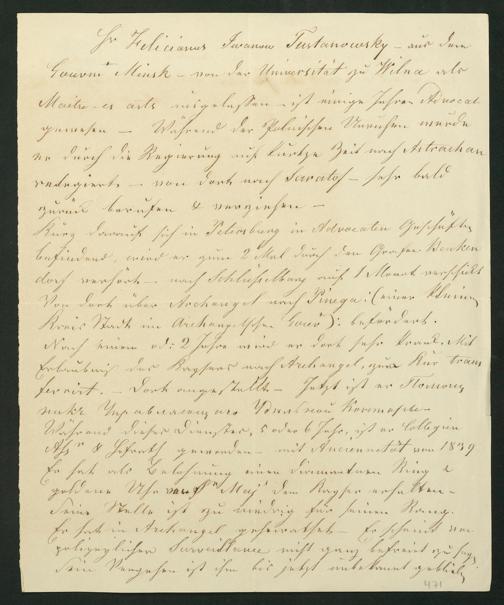 Hr Felicianus Iwanow Tustanowsky – aus dem
Gouvnt Minsk – von der Universität zu Wilna als
Maitre-es arts ausgelassen – ist einige Jahre Advocat
gewesen – Während der Polnischen Unruhen wurde
er durch die Regierung auf kurtze Zeit nach Astrachan
relegiert – von dort nach Saratof – sehr bald
zurück berufen & verziehen –
Kurz darauf, sich in Petersburg in Advocaten Geschäften
befindend, wird er zum 2 Mal durch den Grafen Benken
dorf verhört – nach Schlüsselburg auf 1 Monat verschickt
Von dort über Archangel nach Pinega :(einer kleinen
Kreis Stadt im Archangelschen Gouv): befördert.
Nach einem od: 2 Jahre wird er dort sehr krank. Mit
Erlaubniß des Kaysers nach Archangel, zur Kur trans
ferirt. – Dort angestellt. – Jetzt ist er Помощ
никъ Управляющаго Удѣльной Конторы –
Während dieses Dienstes, 5 oder 6 Jahr, ist er Collegien
Ass & Hofrath geworden – mit Anciennetät von 1839
Er hat als Belohnung einen diamantnen Ring &
goldene Uhr von Sr Maj dem Kayser erhalten –
Seine Stelle ist zu niedrig für seinen Rang.
Er hat in Archangel geheirathet – Er scheint von
polizeylicher Surveillance nicht ganz befreit zu sey
Sein Vergehen ist ihm bis jetzt unbekannt geblieb
471